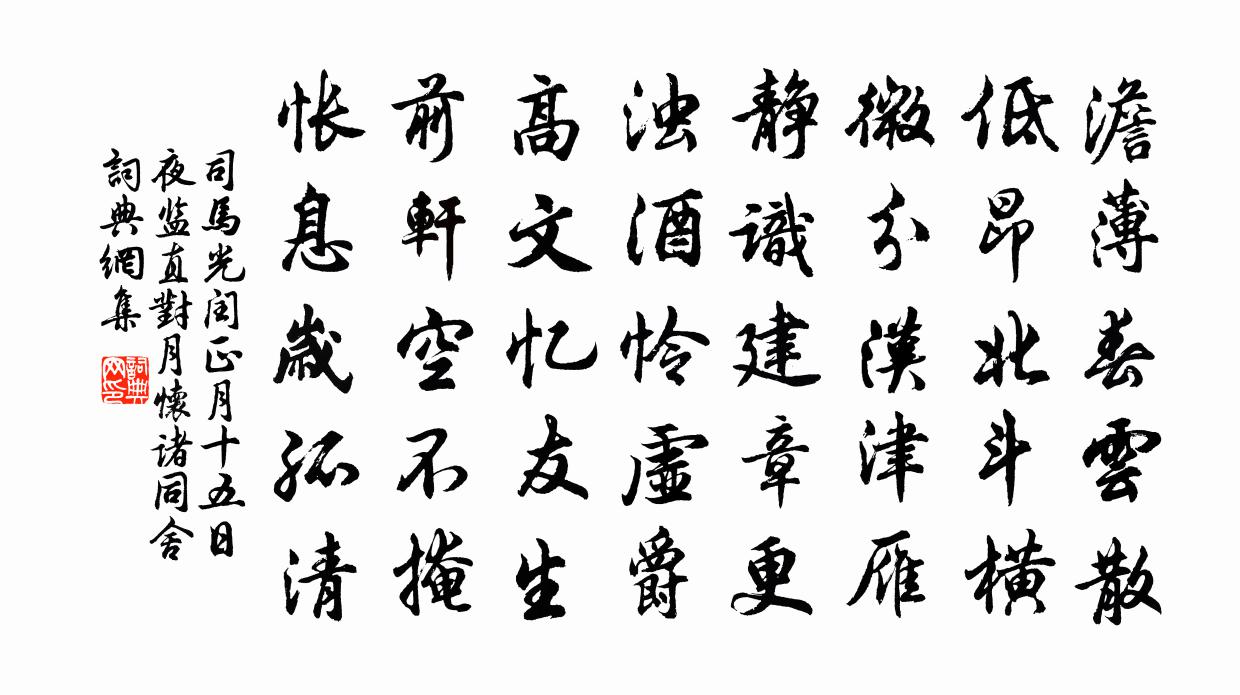 澹薄春雲散
低昂北斗橫
微分漢津雁
静識建章更
浊酒怜虛爵
高文忆友生
前軒空不掩
怅息歲孤清
司馬光闰正月十五日
夜监直對月懷诸同舍
詞典網集
詞典
网印